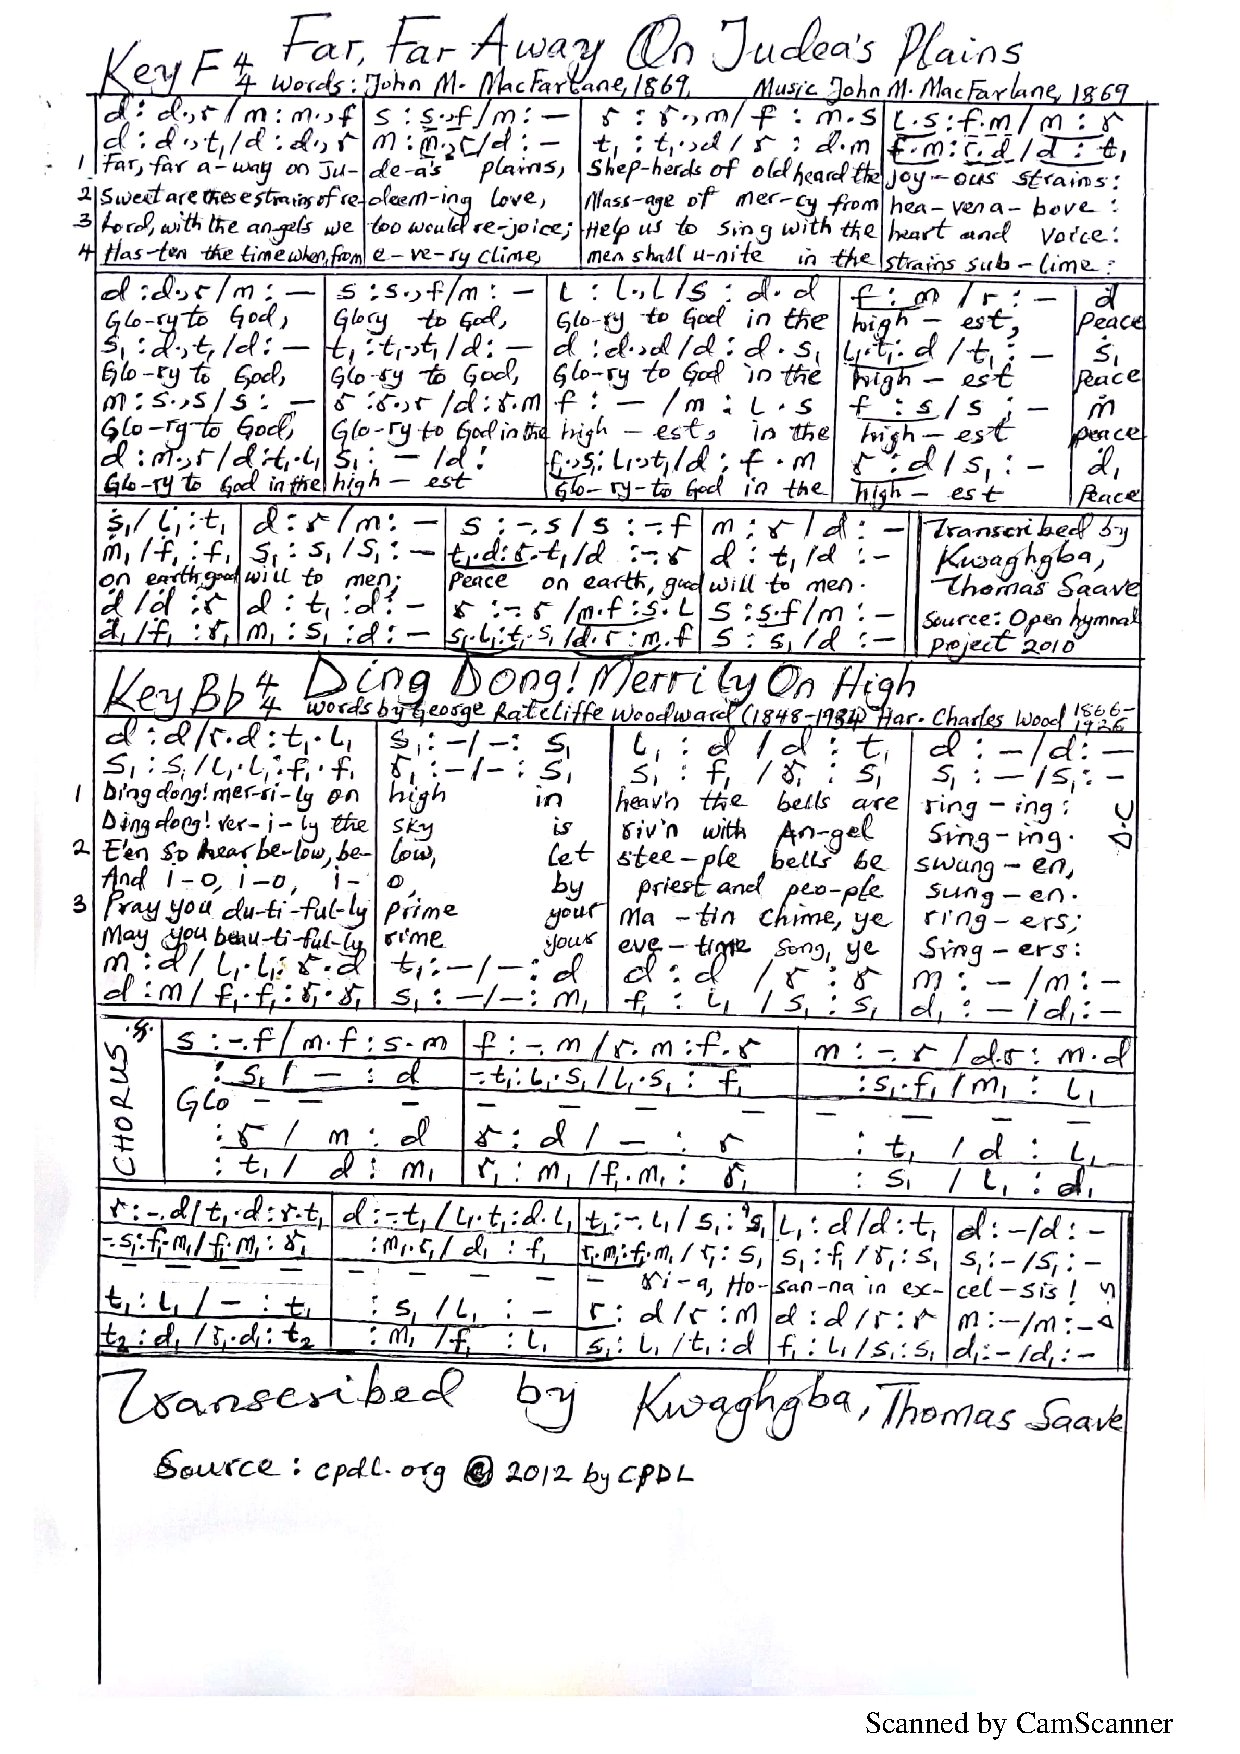 Far, Far Away On Judea's Plains
Key F 4/4 Words: John M. MacFarlane, 1869. Music John M. MacFarlane, 1869
d : d.,r / m : m.,f | s : s.,f / m : — | r : r.,m / f : m.s | l.s : f.m / m : r
d : d.,t₁ / d : d.,r | m : m.,r / d : — | t₁ : t₁.,d / r : d.m | f.m : r.d / d : t₁
1 Far, far a-way on Ju- | de-a's plains, | Shep-herds of old heard the | joy-ous strains:
2 Sweet are these strains of re- | deem-ing love, | Mass-age of mer-cy from | hea-ven a-bove:
3 Lord, with the angels we | too would re-joice; | Help us to sing with the | heart and voice:
4 Has-ten the time when, from | e-ve-ry clime, | men shall u-nite in the | strains sub-lime:
d : d.,r / m : — | s : s.,f / m : — | l : l.,l / s : d.d | f : m / r : — | d
Glo-ry to God, | Glory to God, | Glo-ry to God in the | high-est, | Peace
s₁ : d.,t₁ / d : — | t₁ : t₁.,t₁ / d : — | d : d.,d / d : d.s₁ | l₁.t₁ : d / t₁ : — | s₁
Glo-ry to God, | Glo-ry to God, | Glo-ry to God in the | high-est | Peace
m : s.,s / s : — | r : r.,r / d : r.m | f : — / m : l.s | f : s / s : — | m
Glo-ry to God, | Glo-ry to God in the | high-est, in the | high-est | peace
d : m.,r / d : t₁.l₁ | s₁ : — / d : | f₁.,s₁ : l₁.,t₁ / d : f.m | r : d / s₁ : — | d₁
Glo-ry to God in the | high-est | Glo-ry-to God in the | high-est | Peace
s₁ / l₁ : t₁ | d : r / m : — | s : -.s / s : -.f | m : r / d : — | Transcribed by
m₁ / f₁ : f₁ | s₁ : s₁ / s₁ : — | t₁.d : r.t₁ / d : -.r | d : t₁ / d : - | Kwaghgba,
on earth, good | will to men; | Peace on earth, good | will to men. | Thomas Saave
d / d : r | d : t₁ : d : — | r : -.r / m.f : s.l | s : s.f / m : — | Source: Open hymnal
d₁ / f₁ : r₁ | m₁ : s₁ : d : — | s₁.l₁ : t₁.s₁ / d.r : m.f | s : s₁ / d : — | Project 2010
Key Bb 4/4 Ding Dong! Merrily On High
Words by George Ratcliffe Woodward (1848-1934) Har. Charles Wood 1866-1926
d : d / r.d : t₁.l₁ | s₁ : — / — : s₁ | l₁ : d / d : t₁ | d : — / d : —
s₁ : s₁ / l₁.l₁ : f₁.f₁ | r₁ : — / — : s₁ | s₁ : f₁ / r₁ : s₁ | s₁ : — / s₁ : -
1 Ding dong! mer-ri-ly on | high in | heav'n the bells are | ring-ing:
Ding dong! ver-i-ly the | sky is | riv'n with An-gel | Sing-ing.
D.C
2 E'en so hear be-low, be- | low, Let | stee-ple bells be | swung-en,
And i-o, i-o, i- | o, by | priest and peo-ple | sung-en.
3 Pray you du-ti-ful-ly | prime your | Ma-tin Chime, ye | ring-ers;
May you beau-ti-ful-ly | rime your | eve-time song, ye | Sing-ers:
m : d / l₁.l₁ : r.d | t₁ : — / — : d | d : d / r : r | m : — / m : -
d : m / f₁.f₁ : r₁.r₁ | s₁ : — / — : m₁ | f₁ : l₁ / s₁ : s₁ | d₁ : — / d₁ : -
CHORUS .S.
s : -.f / m.f : s.m | f : -.m / r.m : f.r | m : -.r / d.r : m.d
: s₁ / — : d | -.t₁ : l₁.s₁ / l₁.s₁ : f₁ | : s₁.f₁ / m₁ : l₁
Glo - - - - - - - - -
: r / m : d | r : d / — : r | : t₁ / d : l₁
: t₁ / d : m₁ | r₁ : m₁ / f₁.m₁ : r₁ | : s₁ / l₁ : d₁
r : -.d / t₁.d : r.t₁ | d : -.t₁ / l₁.t₁ : d.l₁ | t₁ : -.l₁ / s₁ : s₁ | l₁ : d / d : t₁ | d : - / d : -
-.s₁ : f₁.m₁ / f₁.m₁ : r₁ | : m₁.r₁ / d₁ : f₁ | r₁.m₁ : f₁.m₁ / r₁ : s₁ | s₁ : f₁ / r₁ : s₁ | s₁ : - / s₁ : -
- - - - - - - - - ri-a, Ho- | san-na in ex- | cel-sis!
t₁ : l₁ / — : t₁ | : s₁ / l₁ : - | r : d / r : m | d : d / r : r | m : - / m : -
t₂ : d₁ / r₁.d₁ : t₂ | : m₁ / f₁ : l₁ | s₁ : l₁ / t₁ : d | f₁ : l₁ / s₁ : s₁ | d₁ : - / d₁ : -
D.S
Transcribed by Kwaghgba, Thomas Saave
Source: cpdl.org @ 2012 by CPDL
Scanned by CamScanner